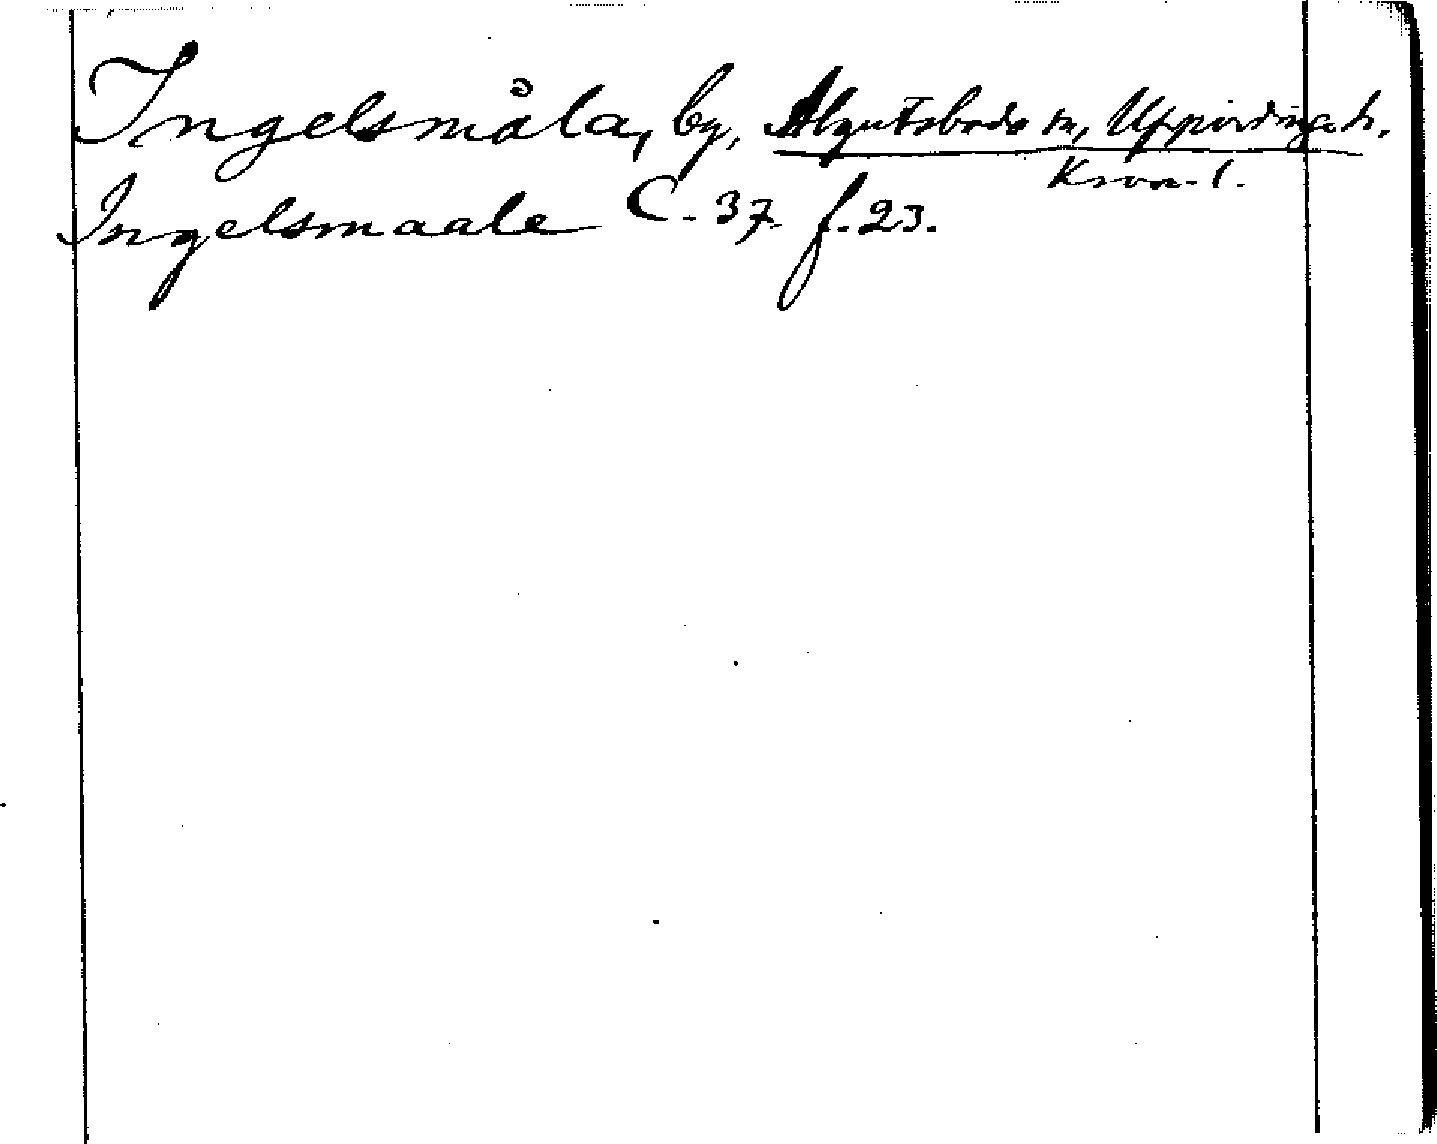 Ingelsmåla, by, Algutsboda sn, Uppvidinge h.
Kron. l.
Ingelsmaale C. 37 f. 23.